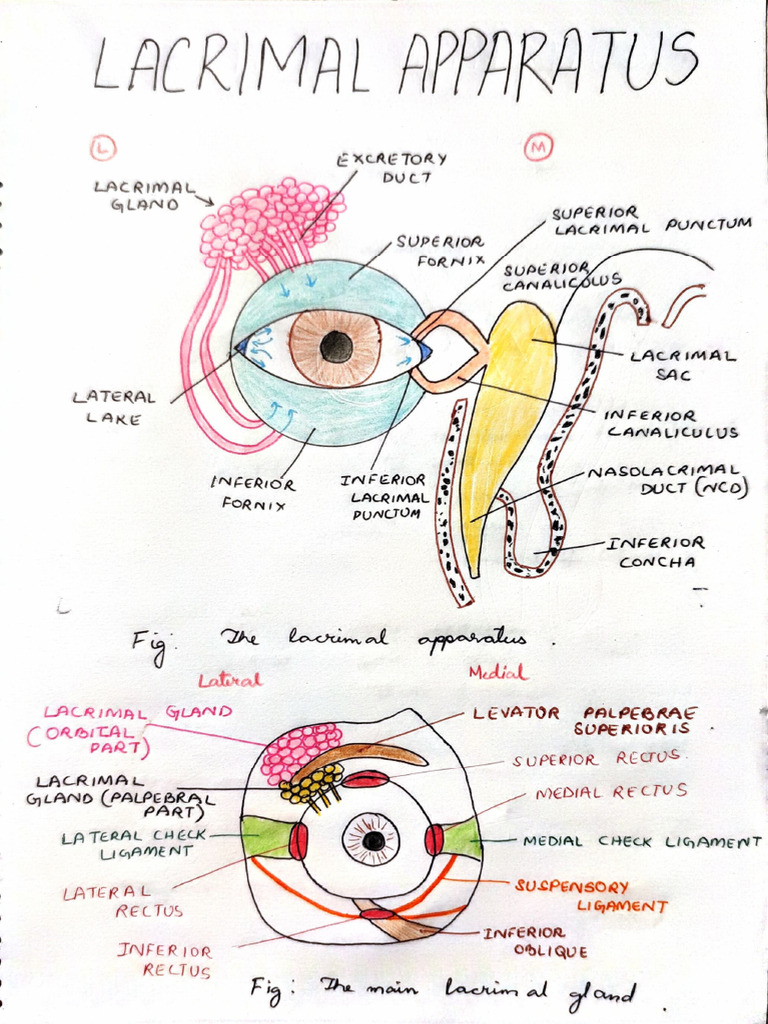 LACRIMAL APPARATUS
L
M
EXCRETORY
DUCT
LACRIMAL
GLAND
SUPERIOR
LACRIMAL PUNCTUM
SUPERIOR
FORNIX
SUPERIOR
CANALICULUS
LACRIMAL
SAC
LATERAL
LAKE
INFERIOR
CANALICULUS
INFERIOR
FORNIX
INFERIOR
LACRIMAL
PUNCTUM
NASOLACRIMAL
DUCT (NCD)
INFERIOR
CONCHA
Fig: The lacrimal apparatus.
Lateral
Medial
LACRIMAL GLAND
(ORBITAL
PART)
LEVATOR PALPEBRAE
SUPERIORIS.
SUPERIOR RECTUS.
LACRIMAL
GLAND (PALPEBRAL
PART)
MEDIAL RECTUS
LATERAL CHECK
LIGAMENT
MEDIAL CHECK LIGAMENT
LATERAL
RECTUS
SUSPENSORY
LIGAMENT
INFERIOR
RECTUS
INFERIOR
OBLIQUE
Fig: The main lacrimal gland.